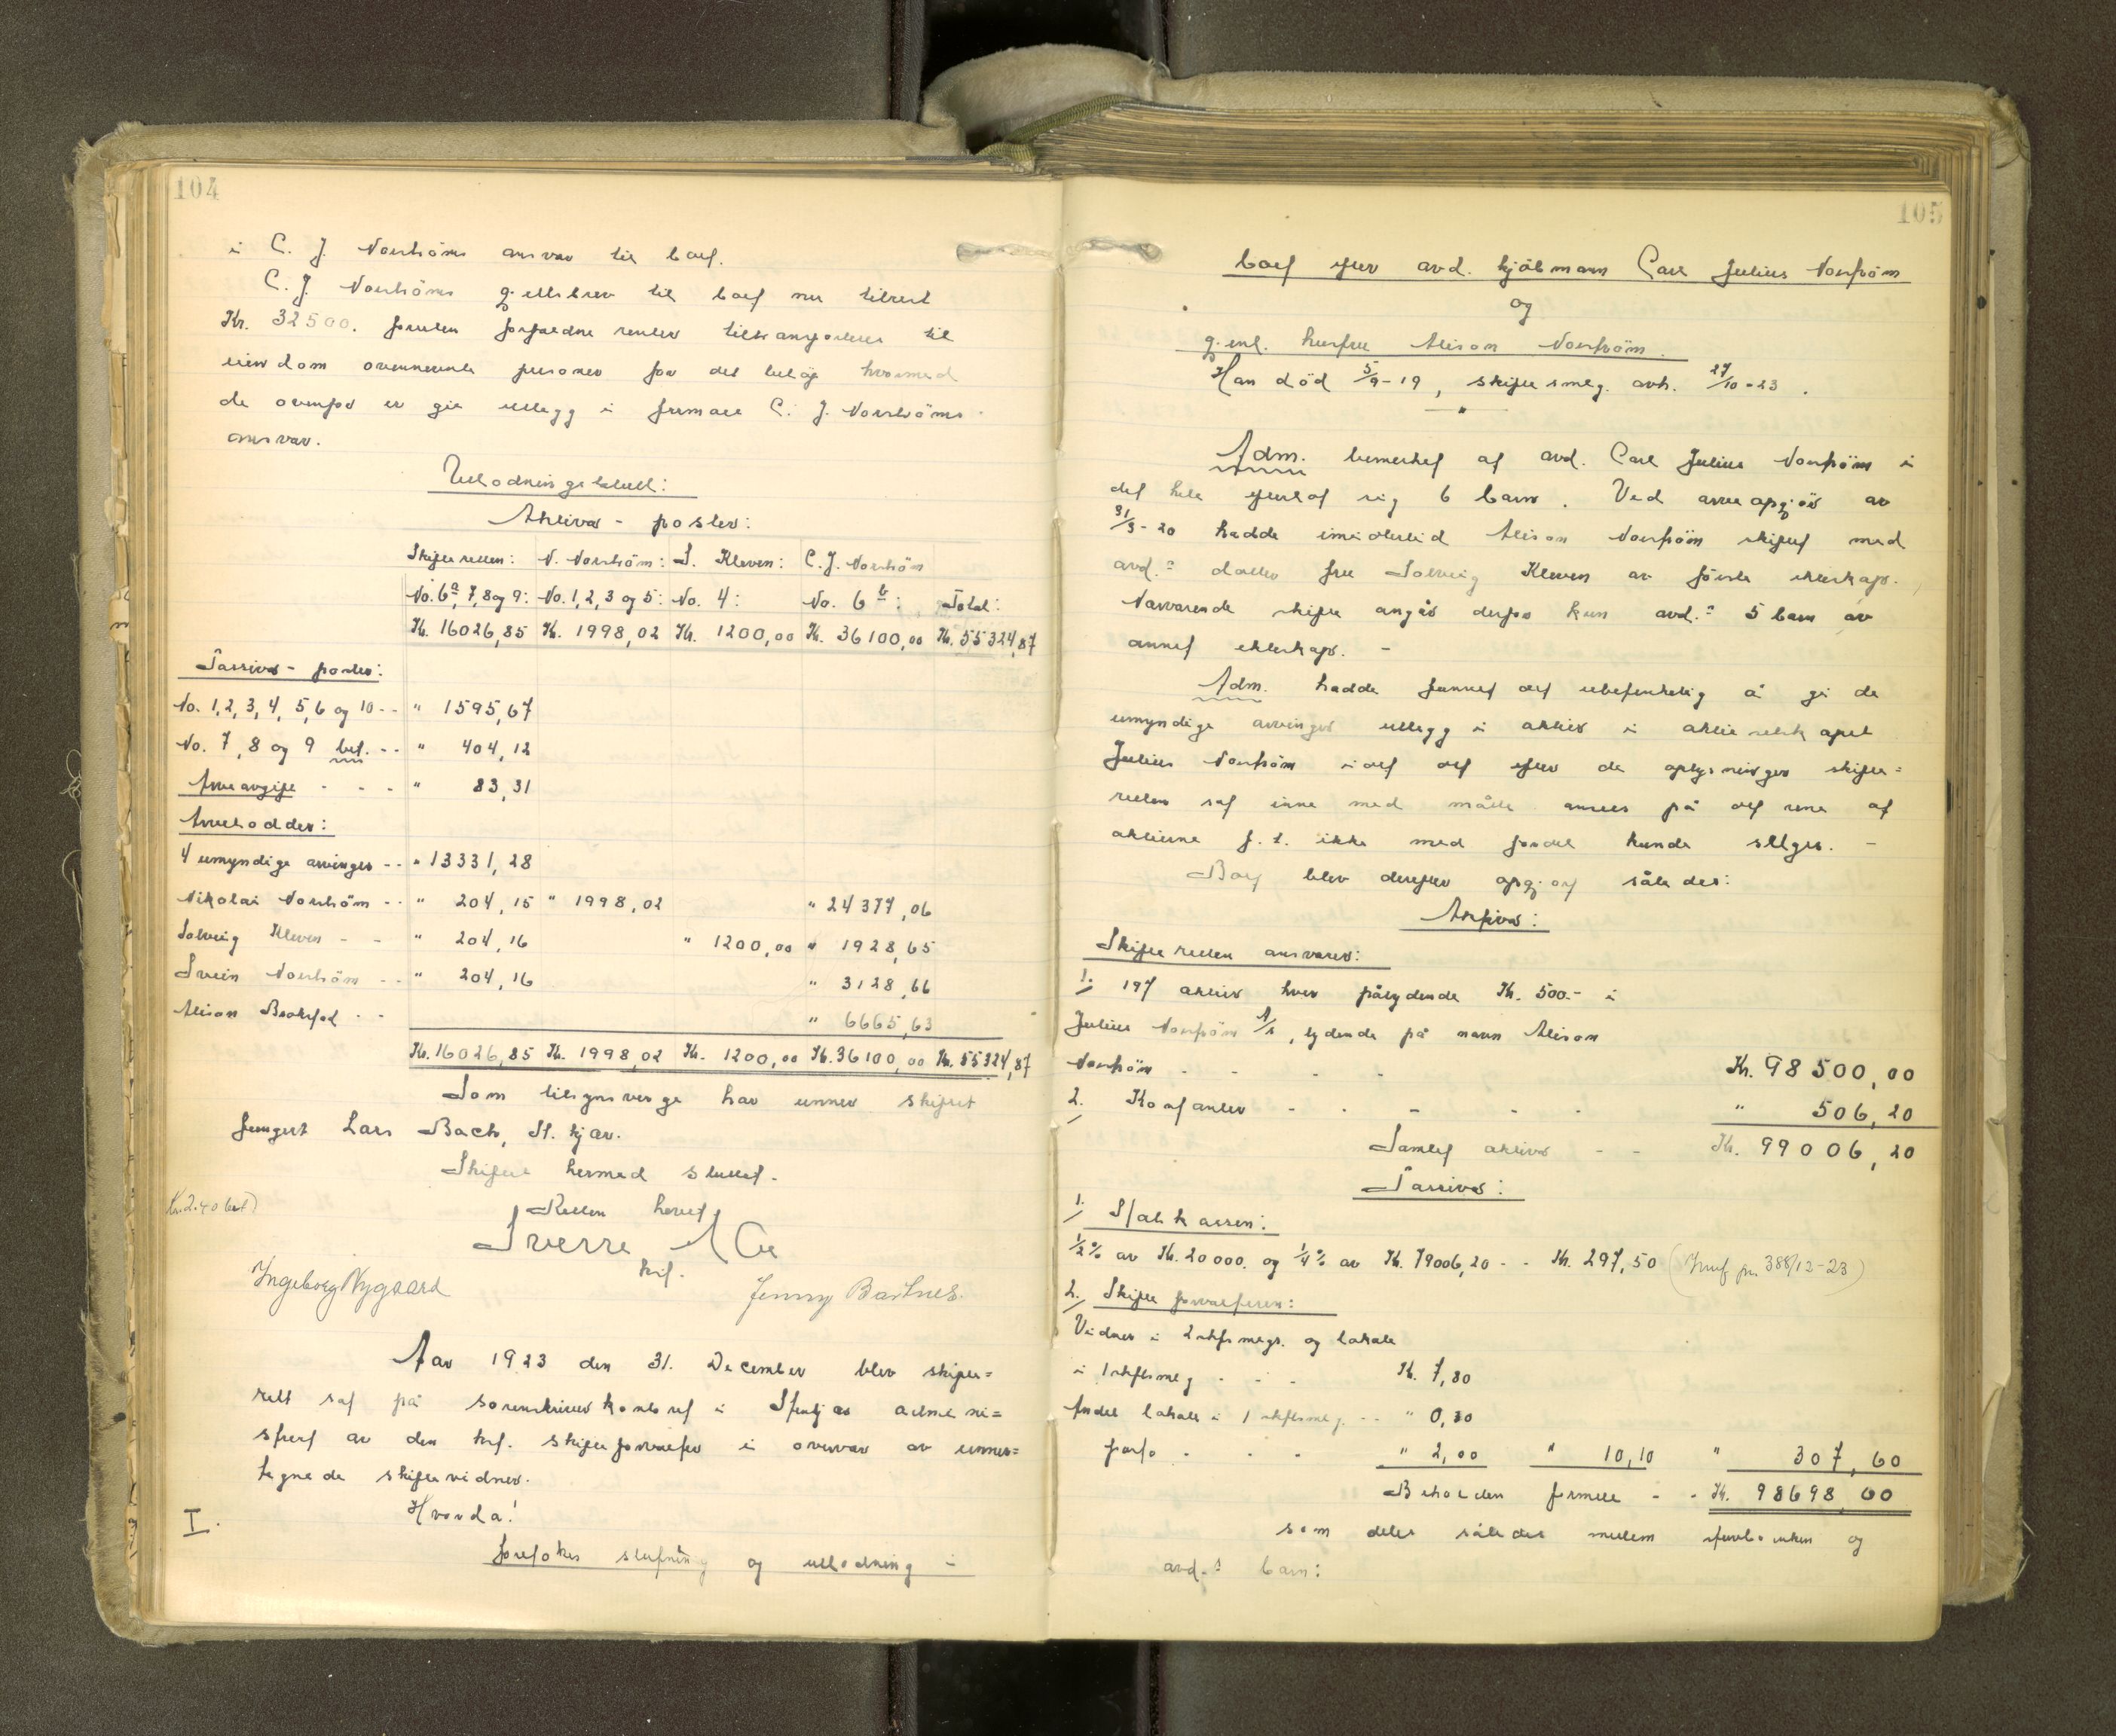 104
i C. J. Norstrøms ansvar til boet.
C. J. Norströms gjeldsbrev til boet nu tilrest
Kr. 32500. foruten forfaldne renter tiltransporteres til
eiendom ovennevnte personer for det beløp hvormed
de ovenfor er git utlegg i firmaet C. J. Norströms
ansvar.
Utlodningstabell:
Aktiva - poster:
Skifteretten: N. Norström: S. Kleven: C. J. Norström
No. 6a, 7, 8 og 9: No. 1, 2, 3 og 5: No. 4: No. 6b: Total:
Kr. 16026,85 Kr. 1998,02 Kr. 1200,00 Kr. 36100,00 Kr. 55324,87
Passiva - poster:
No. 1, 2, 3, 4, 5, 6 og 10 - - " 1595,67
No. 7, 8 og 9 bet. - - " 404,12
Arveavgift - - - " 83,31
Arvelodder:
4 umyndige arvinger - - " 13331,28
Nikolai Norström - - " 204,15 " 1998,02 " 24377,06
Solveig Kleven - - " 204,16 " 1200,00 " 1928,65
Svein Norström - - " 204,16 " 3128,66
Alison Brokstad - - " 6665,63
Kr. 16026,85 Kr. 1998,02 Kr. 1200,00 Kr. 36100,00 Kr. 55324,87
Som tilsynsverge har under skiftet
fungert Lars Bach, St. kjær.
Skiftet hermed sluttet.
Kr. 2.40 bet)
Retten hevet
Sverre
kst.
Ingeborg Nygaard Jenny Bartnes.
Aar 1923 den 31. December blev skifte=
rett sat på sorenskriverkontoret i Stenkjær admini=
strert av den kst. skifteforvalter i overvær av under=
tegnede skiftevidner.
Hvorda!
I.
foretokes slutning og utlodning i
105
boet efter avd. kjöbmann Carl Julius Norström
og
gjenl. husfru Alison Norström.
Han död 5/9-19, skiftesmlg. avh. 27/10-23.
"
Adm. bemerket at avd. Carl Julius Norström i
det hele efterlot sig 6 barn. Ved arveopgjör av
31/3-20 hadde imidlertid Alison Norström skiftet med
avd.s datter fru Solveig Kleven av förste ekteskap.
Nærværende skifte angår derfor kun avd.s 5 barn av
annet ekteskap. -
Adm. hadde funnet det ubetenkelig å gi de
umyndige arvinger utlegg i aktier i aktieselskapet
Julius Norström idet det efter de oplysninger skifte=
retten sat inne med måtte ansees på det rene at
aktierne f. t. ikke med fordel kunde selges. -
Boet blev derefter opgjort således:
Aktiva:
Skifteretten ansvarer:
1. 197 aktier hver pålydende Kr. 500.- i
Julius Norström A/s, lydende på navn Alison
Norström - - - - Kr. 98500,00
2. Kontanter - - - - - " 506,20
Samlet aktiva - - Kr. 99006,20
Passiva:
1. Statskassen:
1/2% av Kr. 20000. og 1/4% av Kr. 79006,20 - - Kr. 297,50 (Innf. jnr. 388/12-23)
2. Skifteforvalteren:
Vidner i 2 skftsmlgr. og lokale
i 1 skftsmlg - - - Kr. 7,80
Andel lokale i 1 skftsmlg. - - " 0,30
porto - - - " 2,00 " 10,10 " 307,60
Beholden formue - - Kr. 98698,60
som deles således mellem sterboenken og
avd.s barn: